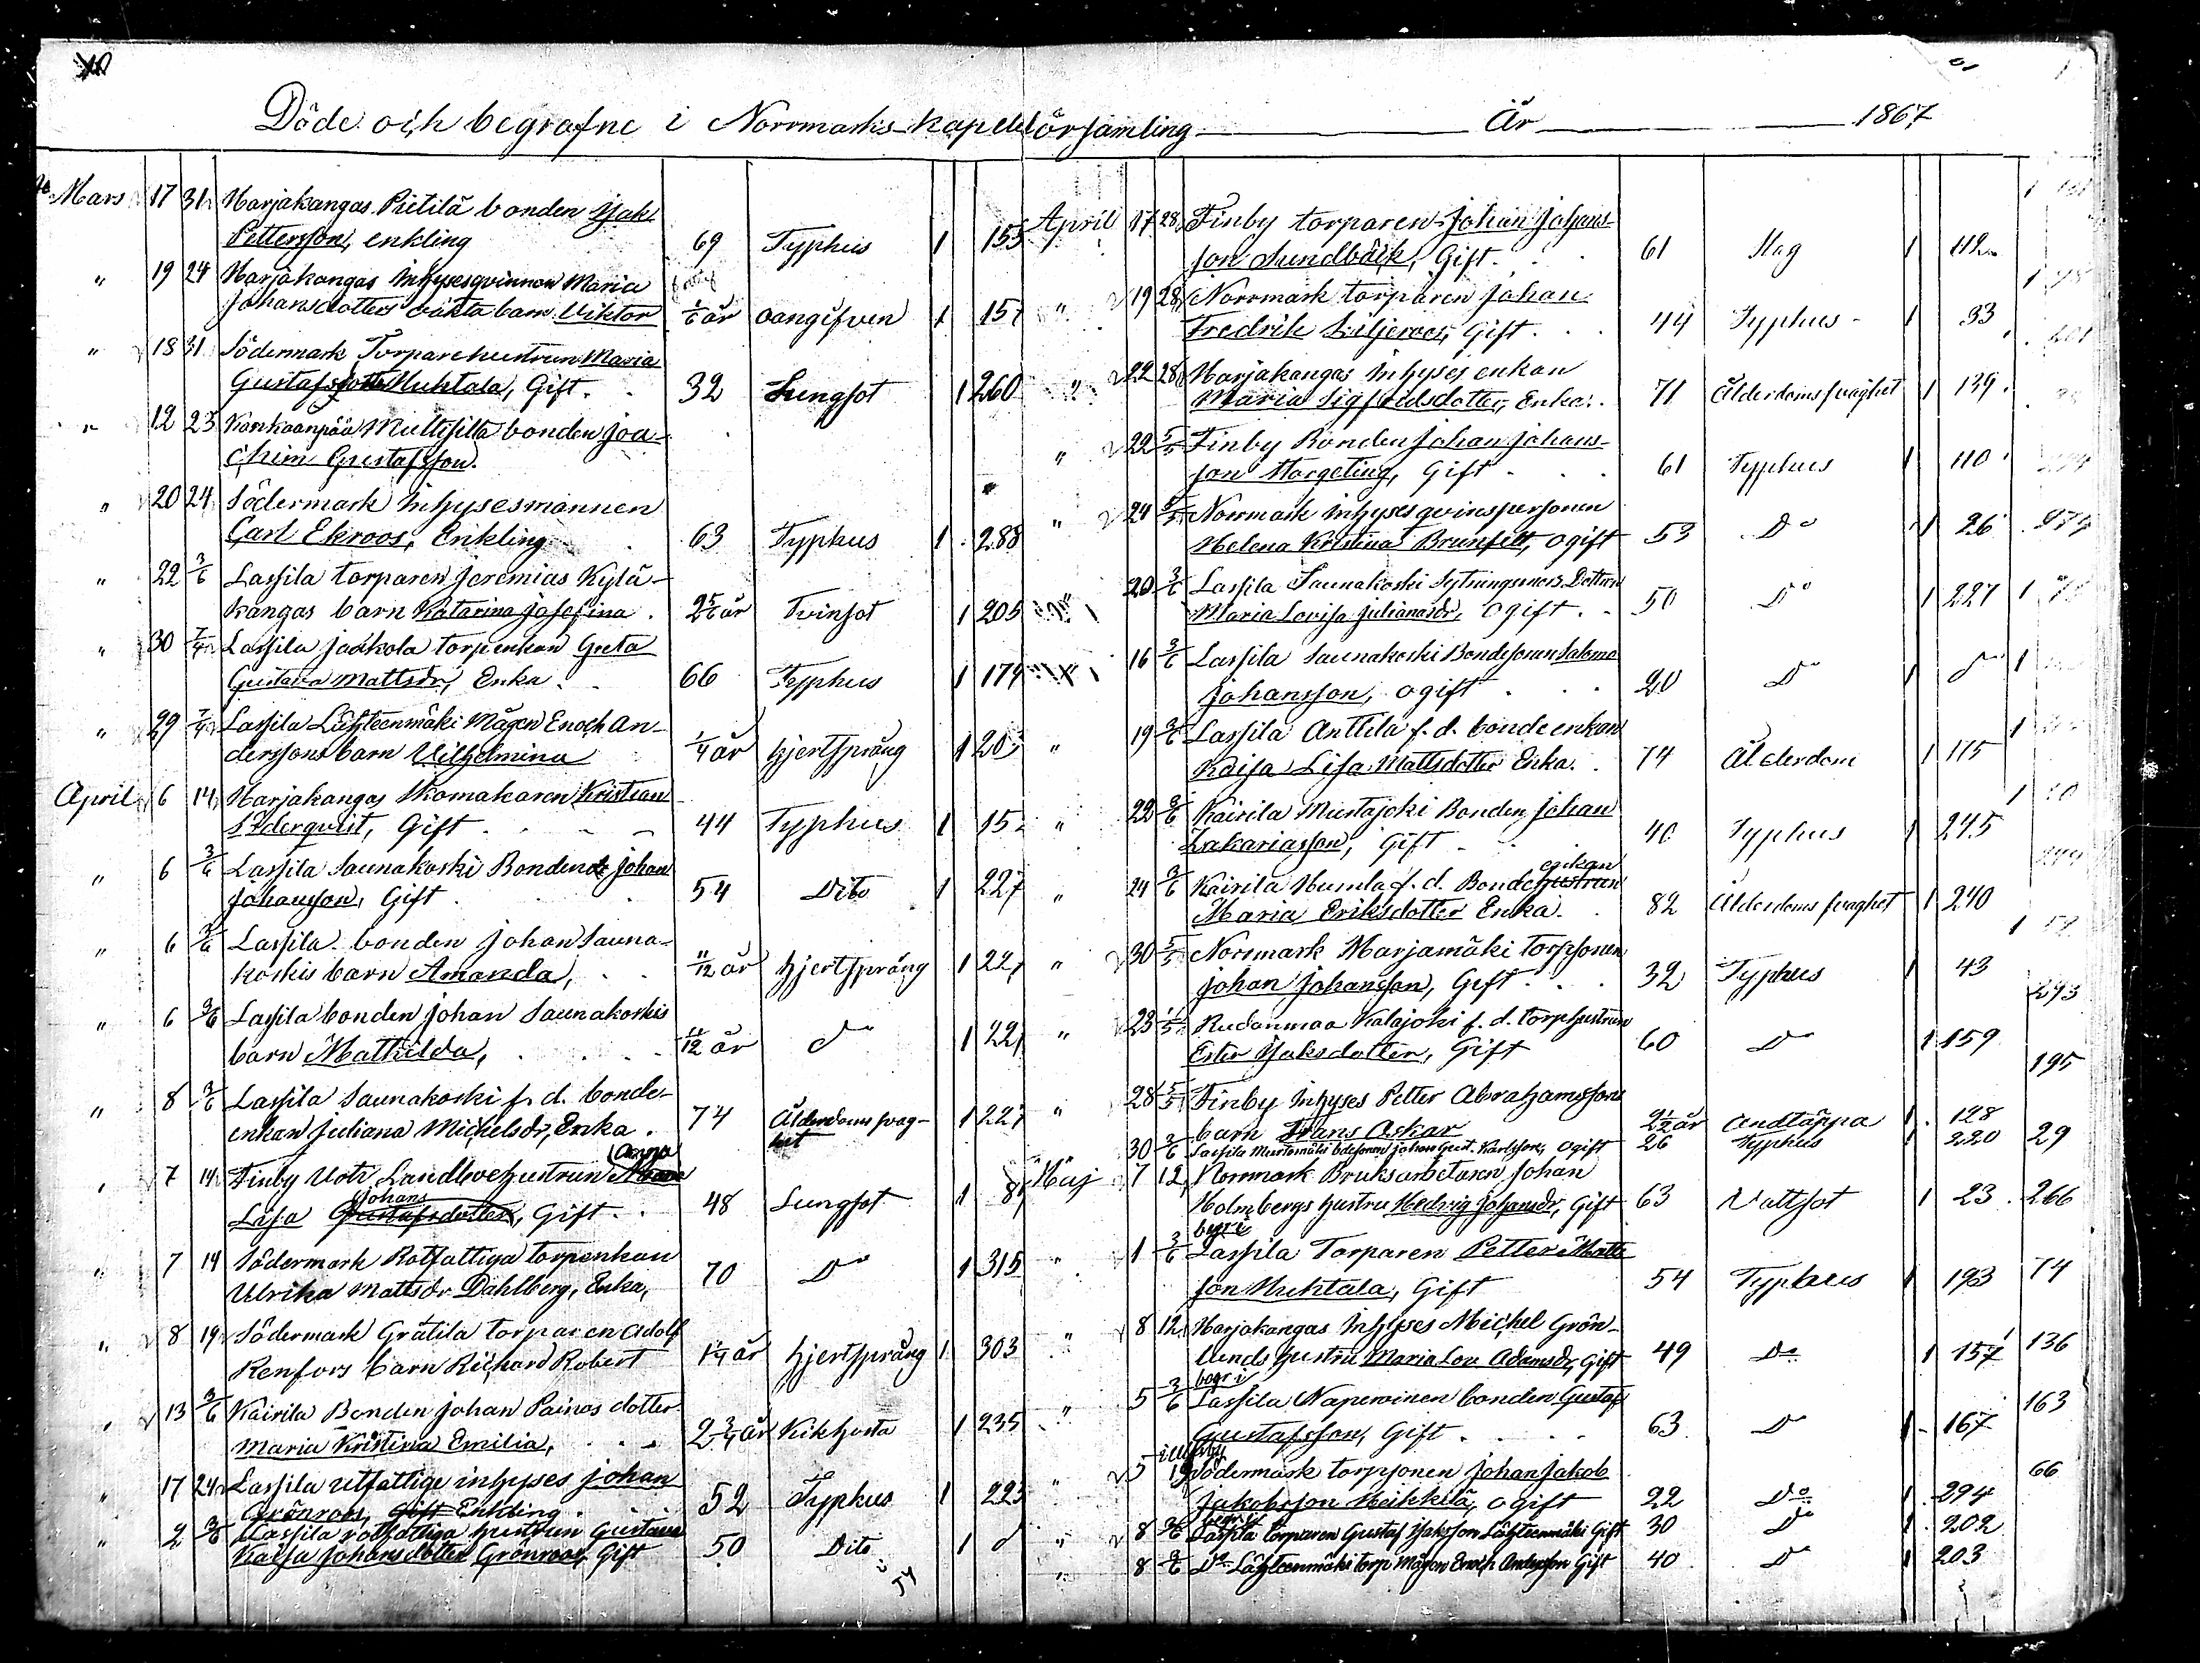 Döde och begrafne i Norrmarks kapellförsamling År 1867
Mars 17 31 Harjakangas Pietilä bonden Isak
Pettersson, enkling 69 Typhus 1 155
" 19 24 Harjakangas Inhysesqvinnan Maria
Johansdotters oäkta barn Viktor 1/6 år oangifven 1
" 18 31 Södermark Torparehustrun Maria
Gustafsdotter Huhtala, Gift. 32 Lungsot 1 260
" 12 23 Kankaanpää Multisilta bonden Joa-
chim Gustafsson.
" 20 24 Södermark Inhysesmannen
Carl Ekroos, Enkling 63 Typhus 1 288
" 22 3/6 Lassila torparen Jeremias Kylä-
kangas barn Katarina Josefina 2 5/6 år Tvinsot 1 205
" 30 7/4 Lassila Jaakola torpenkan Greta
Gustava Mattsdr, Enka 66 Typhus 1 179
" 29 7/4 Lassila Lähteenmäki Mågen Enoch An-
derssons barn Vilhelmina 1/4 år hjertsprång 1 203
April 6 14 Harjakangas Skomakaren Kristian
Söderqvist, Gift 44 Typhus 1
" 6 3/6 Lassila Saunakoski Bonden Johan
Johansson, Gift 54 Dito 1 227
" 6 3/6 Lassila bonden Johan Sauna-
koskis barn Amanda, 11/12 år hjertsprång 1 227
" 6 3/6 Lassila bonden Johan Saunakoskis
barn Mathilda, 11/12 år do 1 227
" 8 3/6 Lassila Saunakoski f. d. bonde-
enkan Juliana Michelsdr, Enka. 74 Ålderdomssvag-
het 1 227
" 7 14 Finby Uoti Landbohustrun Anna
Lisa Johans Gustafsdotter, Gift 48 Lungsot 1
" 7 14 Södermark Rotfattiga torpenkan
Ulrika Mattsdr Dahlberg, Enka, 70 Do 1 315
" 8 19 Södermark Grätila torparen Adolf
Renfors barn Richard Robert 1 1/4 år hjertsprång 1 303
" 13 3/6 Kairila Bonden Johan Painos dotter
Maria Kristina Emilia, 2 3/4 år Kikhosta 1 235
" 17 24 Lassila utfattige inhyses Johan
Grönroos, Gift Enkling. 52 Typhus 1 223
" 2 3/6 Lassila rotfattiga hustrun Gustava
Kaisa Johansdotter Grönroos, Gift 50 Dito 1 d
April 17 28 Finby torparen Johan Johans-
son Sundbäck, Gift. 61 Slag 1 112
" 19 28 Norrmark torparen Johan
Fredrik Liljeroos, Gift. 44 Typhus 1 33
" 22 28 Harjakangas Inhyses enkan
Maria Sigfridsdotter, Enka. 71 Ålderdomssvaghet 1 139
" 22 5/5 Finby Bonden Johan Johans-
son Margeting, Gift 61 Typhus 1 110
" 24 5/5 Norrmark Inhyses qvinspersonen
Helena Kristina Brunfelt, ogift 53 Do 1 26
20 3/6 Lassila Saunakoski Sytningsmors Dottern
Maria Lovisa Julianasdr, ogift. 50 Do 1 227
16 3/6 Lassila Saunakoski Bondesonen Salomo
Johansson, ogift 20 Do 1 d
" 19 3/6 Lassila Anttila f. d. bondeenkan
Kaisa Lisa Mattsdotter Enka. 74 Ålderdom 1 175
" 22 3/6 Kairila Mustajoki Bonden Johan
Zakariasson, Gift 40 Typhus 1 245
" 24 3/6 Kairila Humla f. d. Bondehustrun enkan
Maria Eriksdotter Enka. 82 Ålderdomssvaghet 1 240
" 30 5/5 Norrmark Harjamäki torpsonen
Johan Johansson, Gift 32 Typhus 1 43
" 23 1/5 Rudanmaa Kalajoki f. d. torphustrun
Ester Isaksdotter, Gift 60 Do 1 159
" 28 5/5 Finby Inhyses Petter Abrahamssons
barn Frans Oskar 2 1/2 år Andtäppa 1 128
30 3/6 Lassila Mustamäki bdesonen Johan Gust. Karlsson, ogift 26 Typhus 220 29
Maj 7 12 Norrmark Bruksarbetaren Johan
Holmbergs hustru Hedvig Johansdr, Gift 63 Vattsot 1 23 266
begr i
" 1 3/6 Lassila Torparen Petter Matts
son Huhtala, Gift 54 Typhus 1 193 74
" 8 12 Harjakangas Inhyses Michel Grön-
lunds hustru Maria Lov. Adamsdr, Gift 49 Do 1 157 136
begr i
" 5 3/6 Lassila Naperoinen bonden Gustaf
Gustafsson, Gift 63 Do 1 167 163
" 5 19 Södermark torpsonen Johan Jakob
Jakobsson Heikkilä, ogift 22 Do 1 294 66
" 8 3/6 Lassila torparen Gustaf Isaksson Lähteenmäki Gift 30 Do 1 202
" 8 3/6 Do Lähteenmäki torp Mågen Enoch Andersson Gift 40 Do 1 203